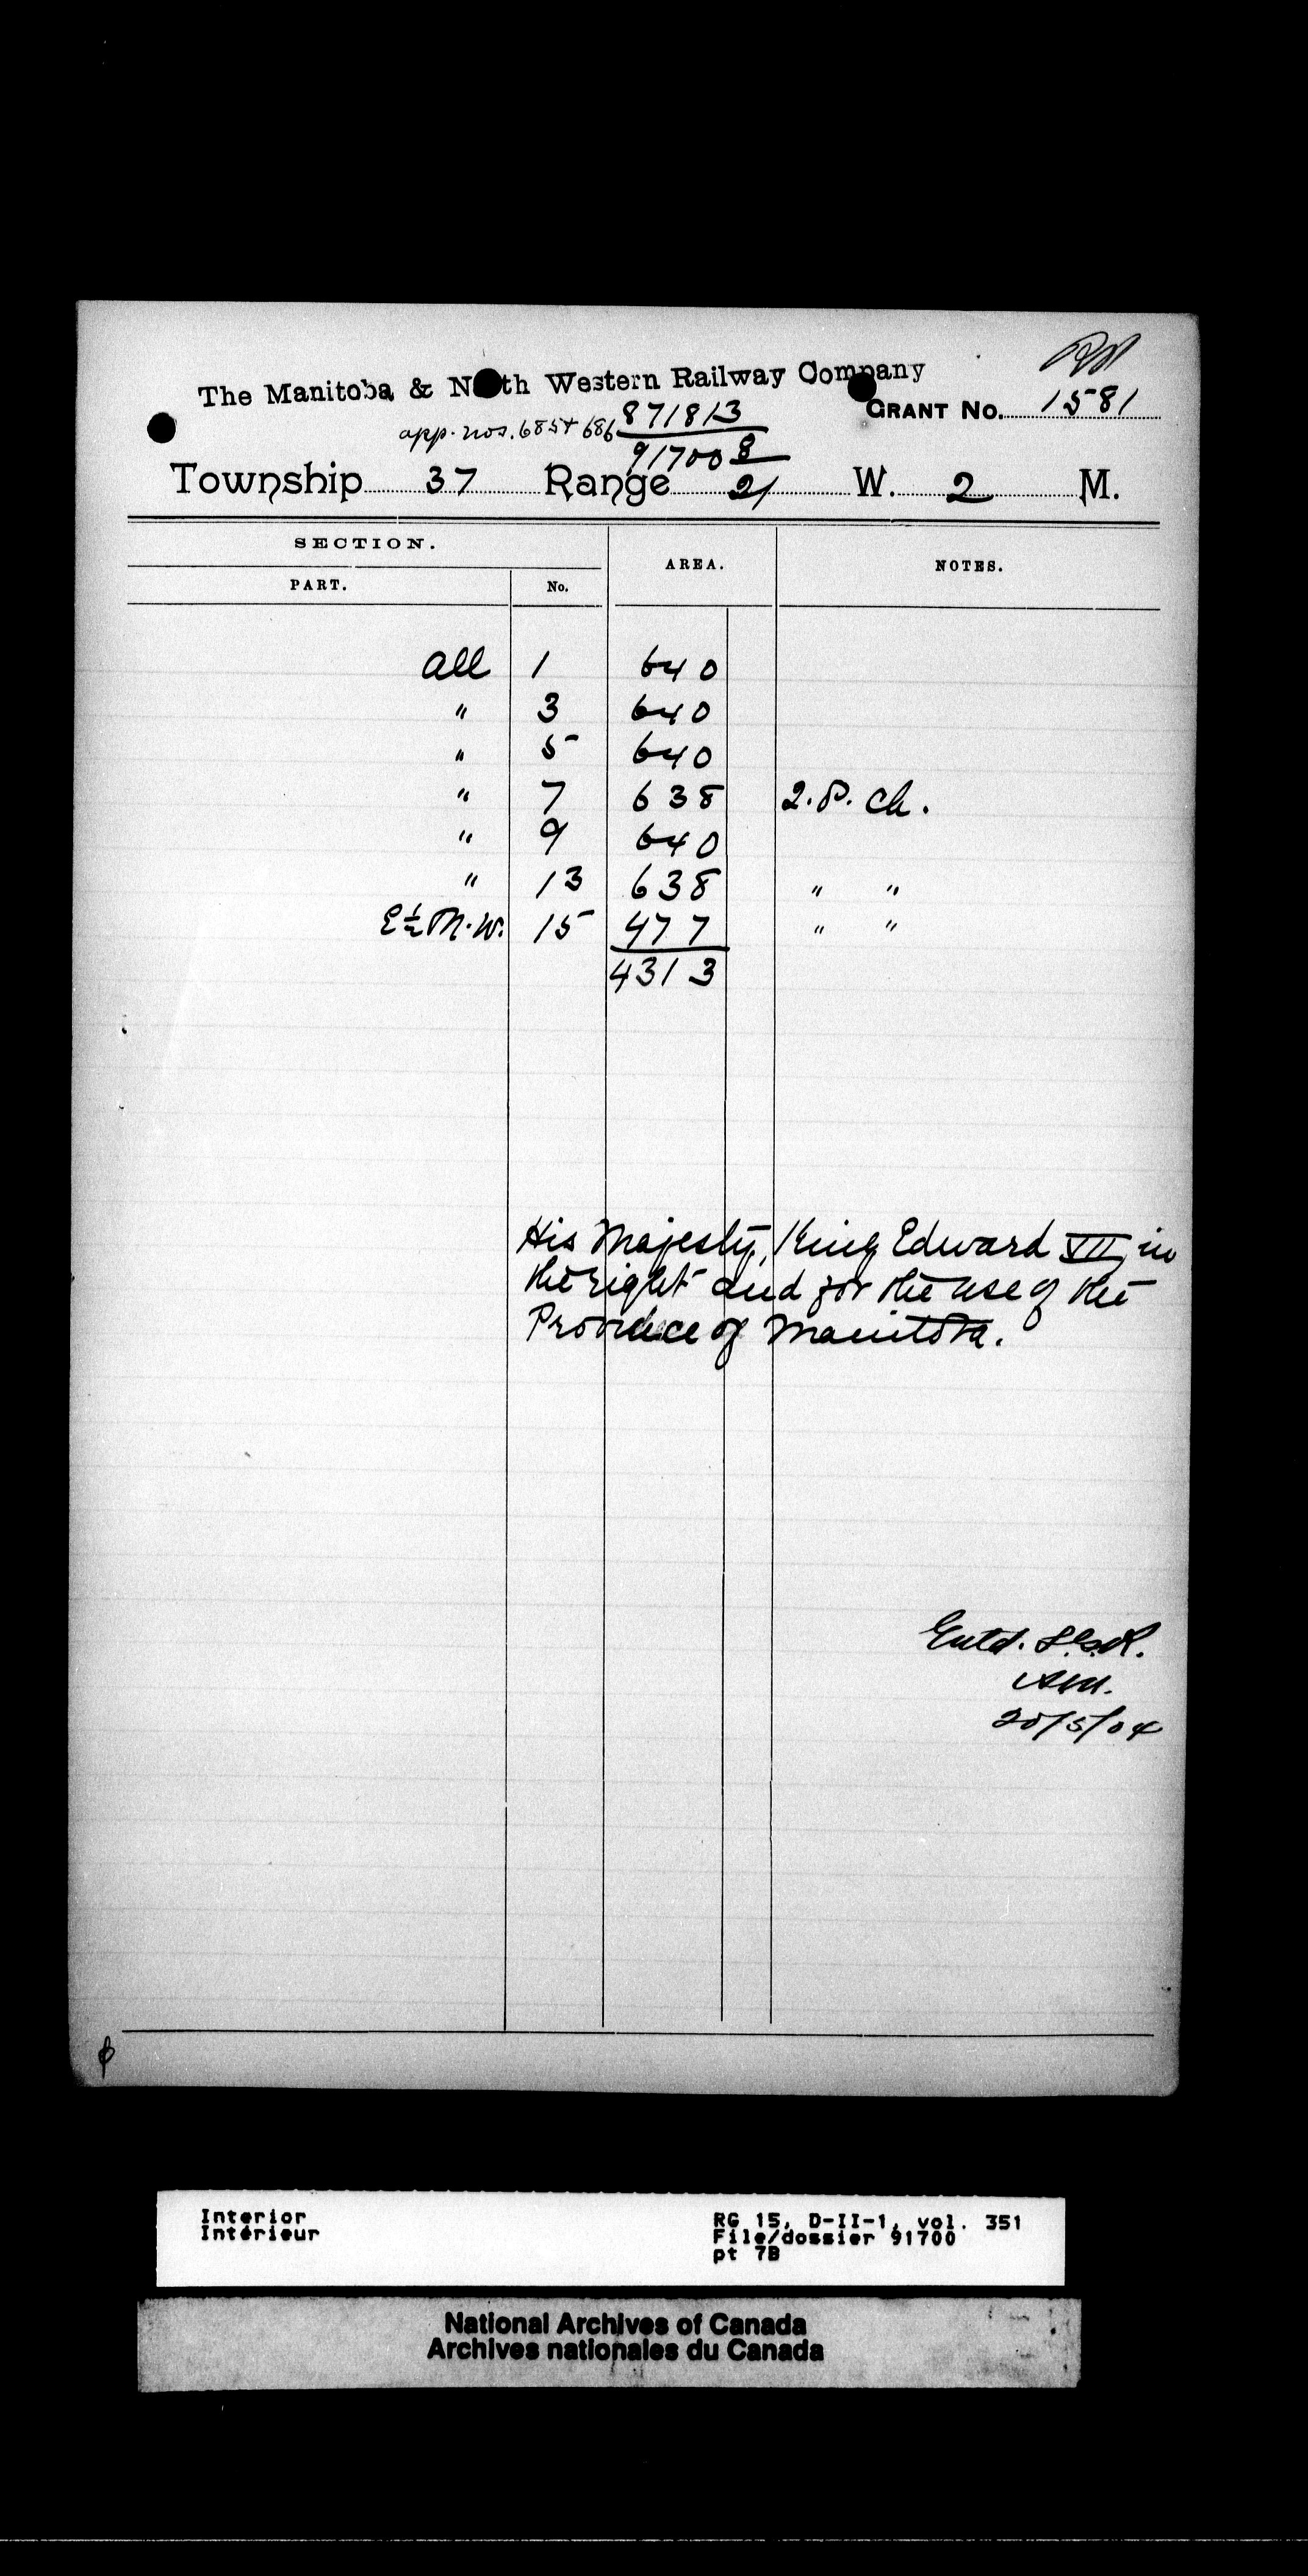 The Manitoba & North Western Railway Company
GRANT No. 1581
app. nos. 685 + 686 871813
91700 8
Township 37 Range 21 W. 2 M.
SECTION.
AREA.
NOTES.
PART.
No.
All 1 640
" 3 640
" 5 640
" 7 638 2. P. Ch.
" 9 640
" 13 638 " "
E½ N.W. 15 477 " "
4313
His Majesty, King Edward VII, in
the right and for the use of the
Province of Manitoba.
Entd. L.G.R.
20/5/04
Interior
Intérieur
RG 15, D-II-1, vol. 351
File/dossier 91700
pt 7B
National Archives of Canada
Archives nationales du Canada